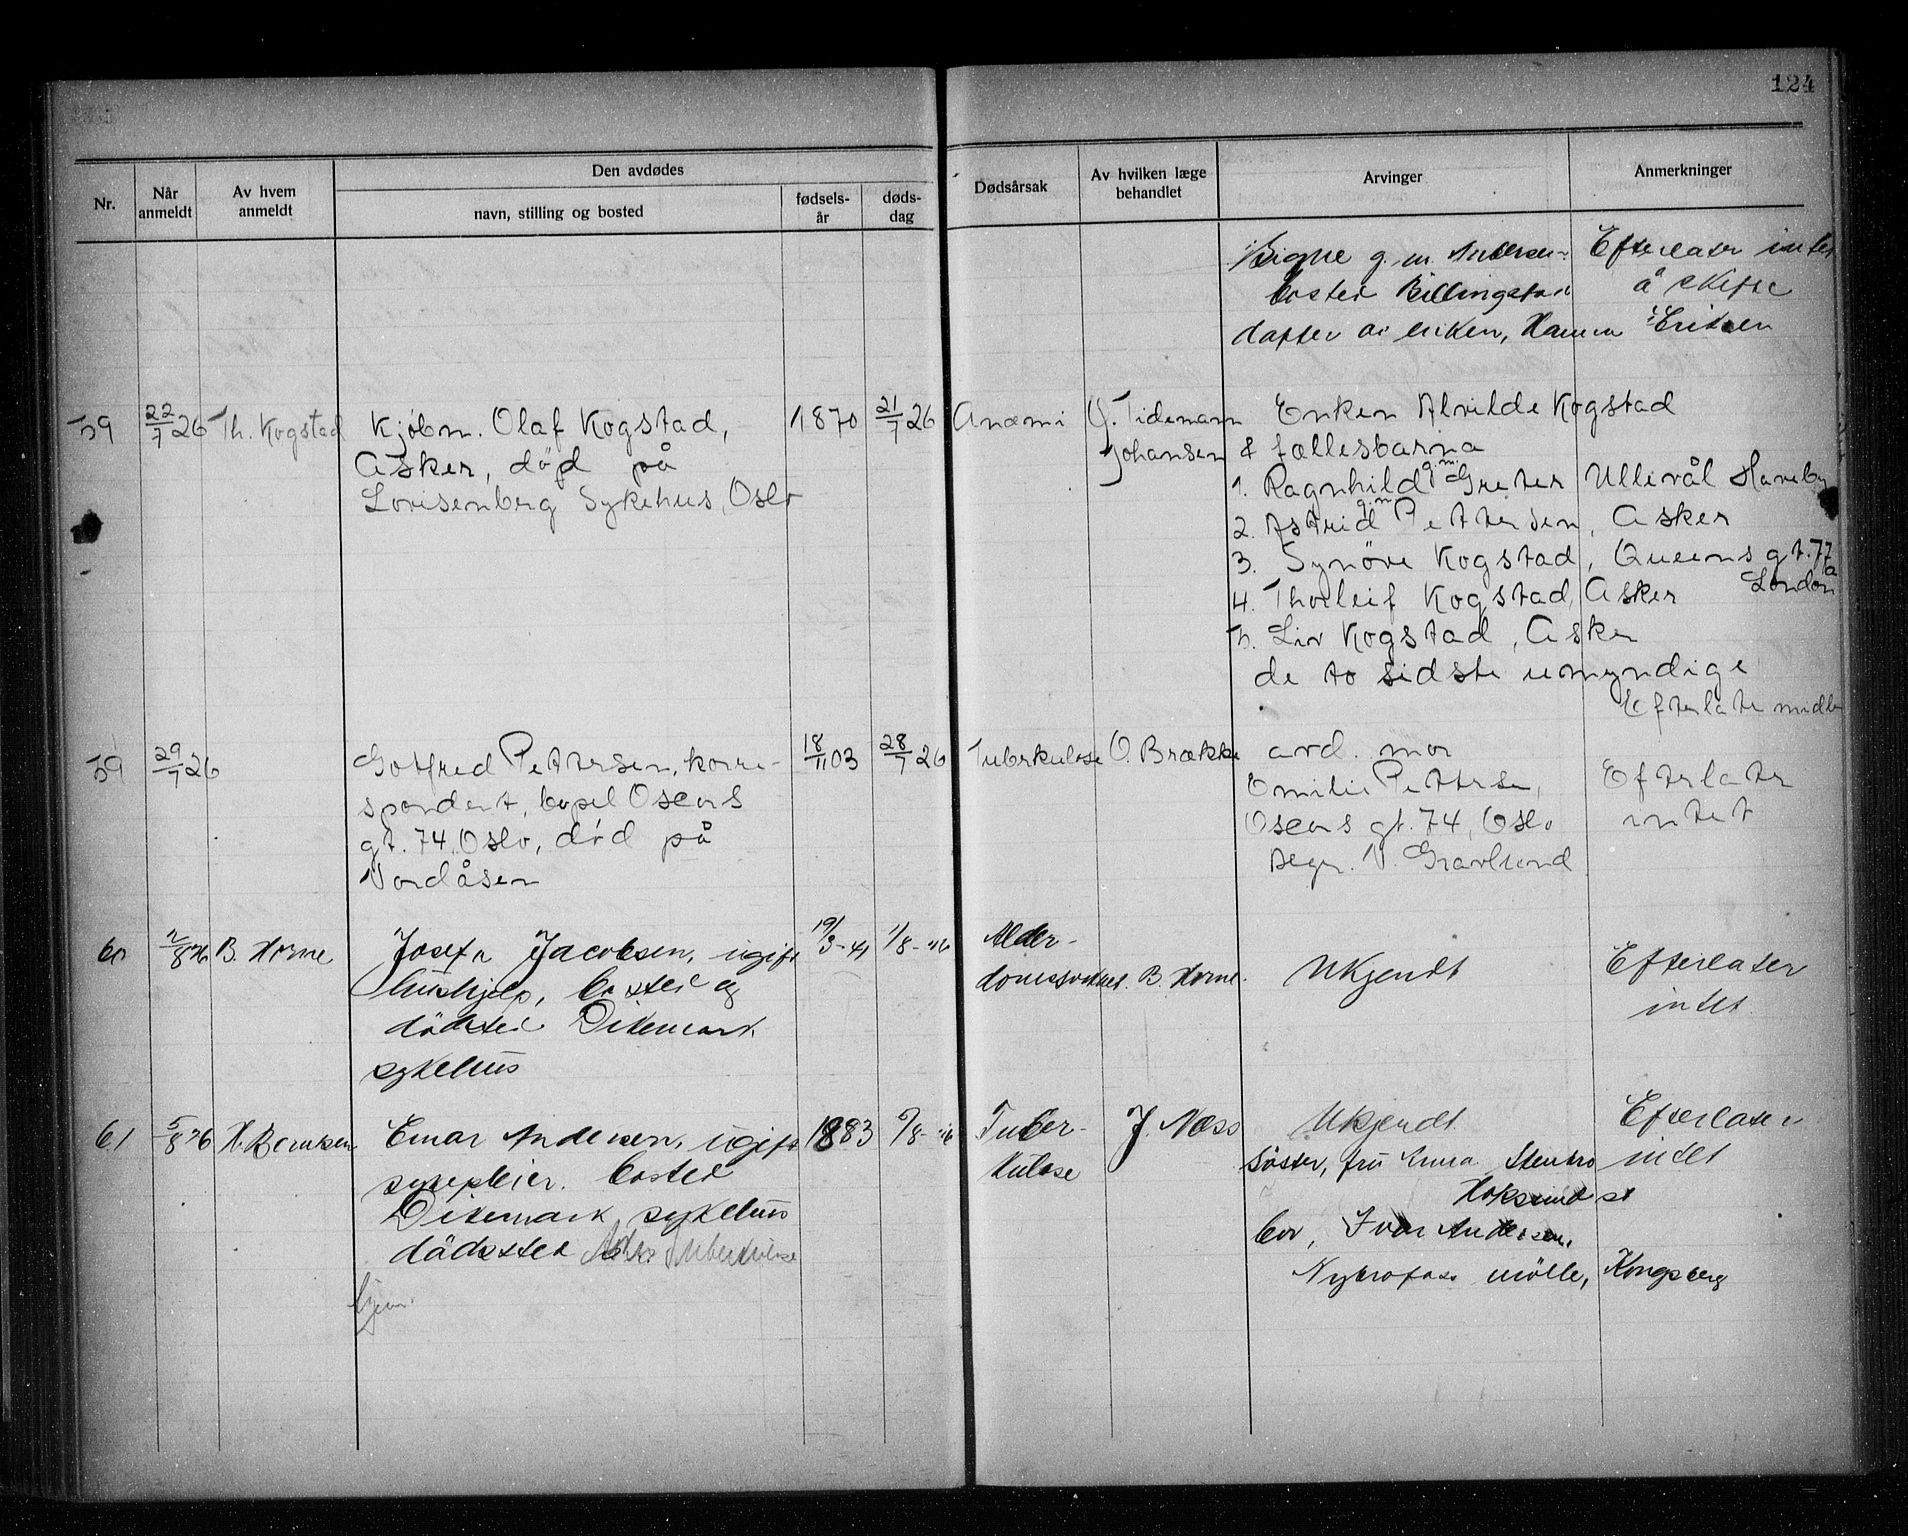 124
Nr.
Når anmeldt
Av hvem anmeldt
Den avdødes
navn, stilling og bosted
fødsels-år
døds-dag
Dødsårsak
Av hvilken læge behandlet
Arvinger
Anmerkninger
Signe g. m. Andersen
bosted Billingstad
datter av enken, Hanna Eriksen
Efterlater intet
å skifte
59
22/7 26
Th. Kogstad
Kjøbm. Olaf Kogstad,
Asker, død på
Lovisenberg Sykehus, Oslo
1870
21/7 26
Anæmi
Tidemann
Johansen
Enken Alvilde Kogstad
& fællesbarna
1. Ragnhild g.m. Greter Ullevål Haveby
2. Astrid g.m. Pettersen, Asker
3. Synöve Kogstad, Queens gt. 77a
London
4. Thorleif Kogstad, Asker
5. Liv Kogstad, Asker
de to sidste umyndige
Efterlater midler
59
29/7 26
Gotfred Pettersen, korre-
spondent, bopel Oscars
gt. 74, Oslo, død på
Vordåsen
18/11 03
28/7 26
Tuberkulose
O. Brække
avd. mor
Emilie Pettersen,
Oscars gt. 74, Oslo
V. Gravlund
Efterlater
intet
60
2/8 26
B. Horne
Josefa Jacobsen, ugift
hushjelp, bosted og
dödsted Dikemark
sykehus
19/3-41
1/8-26
Alder-
domssvakhet
B. Horne
Ukjendt
Efterlater
intet
61
5/8 26
H. Berntsen
Einar Andersen, ugift
sykepleier. bosted
Dikemark sykehus
dödsted Asker Tuberkulose
hjem
1883
5/8-26
Tuber-
kulose
J. Næss
Ukjendt
söster, fru Anna
Hoksund st
bor, Ivar Andersen,
mölle, Kongsberg
Efterlater
intet